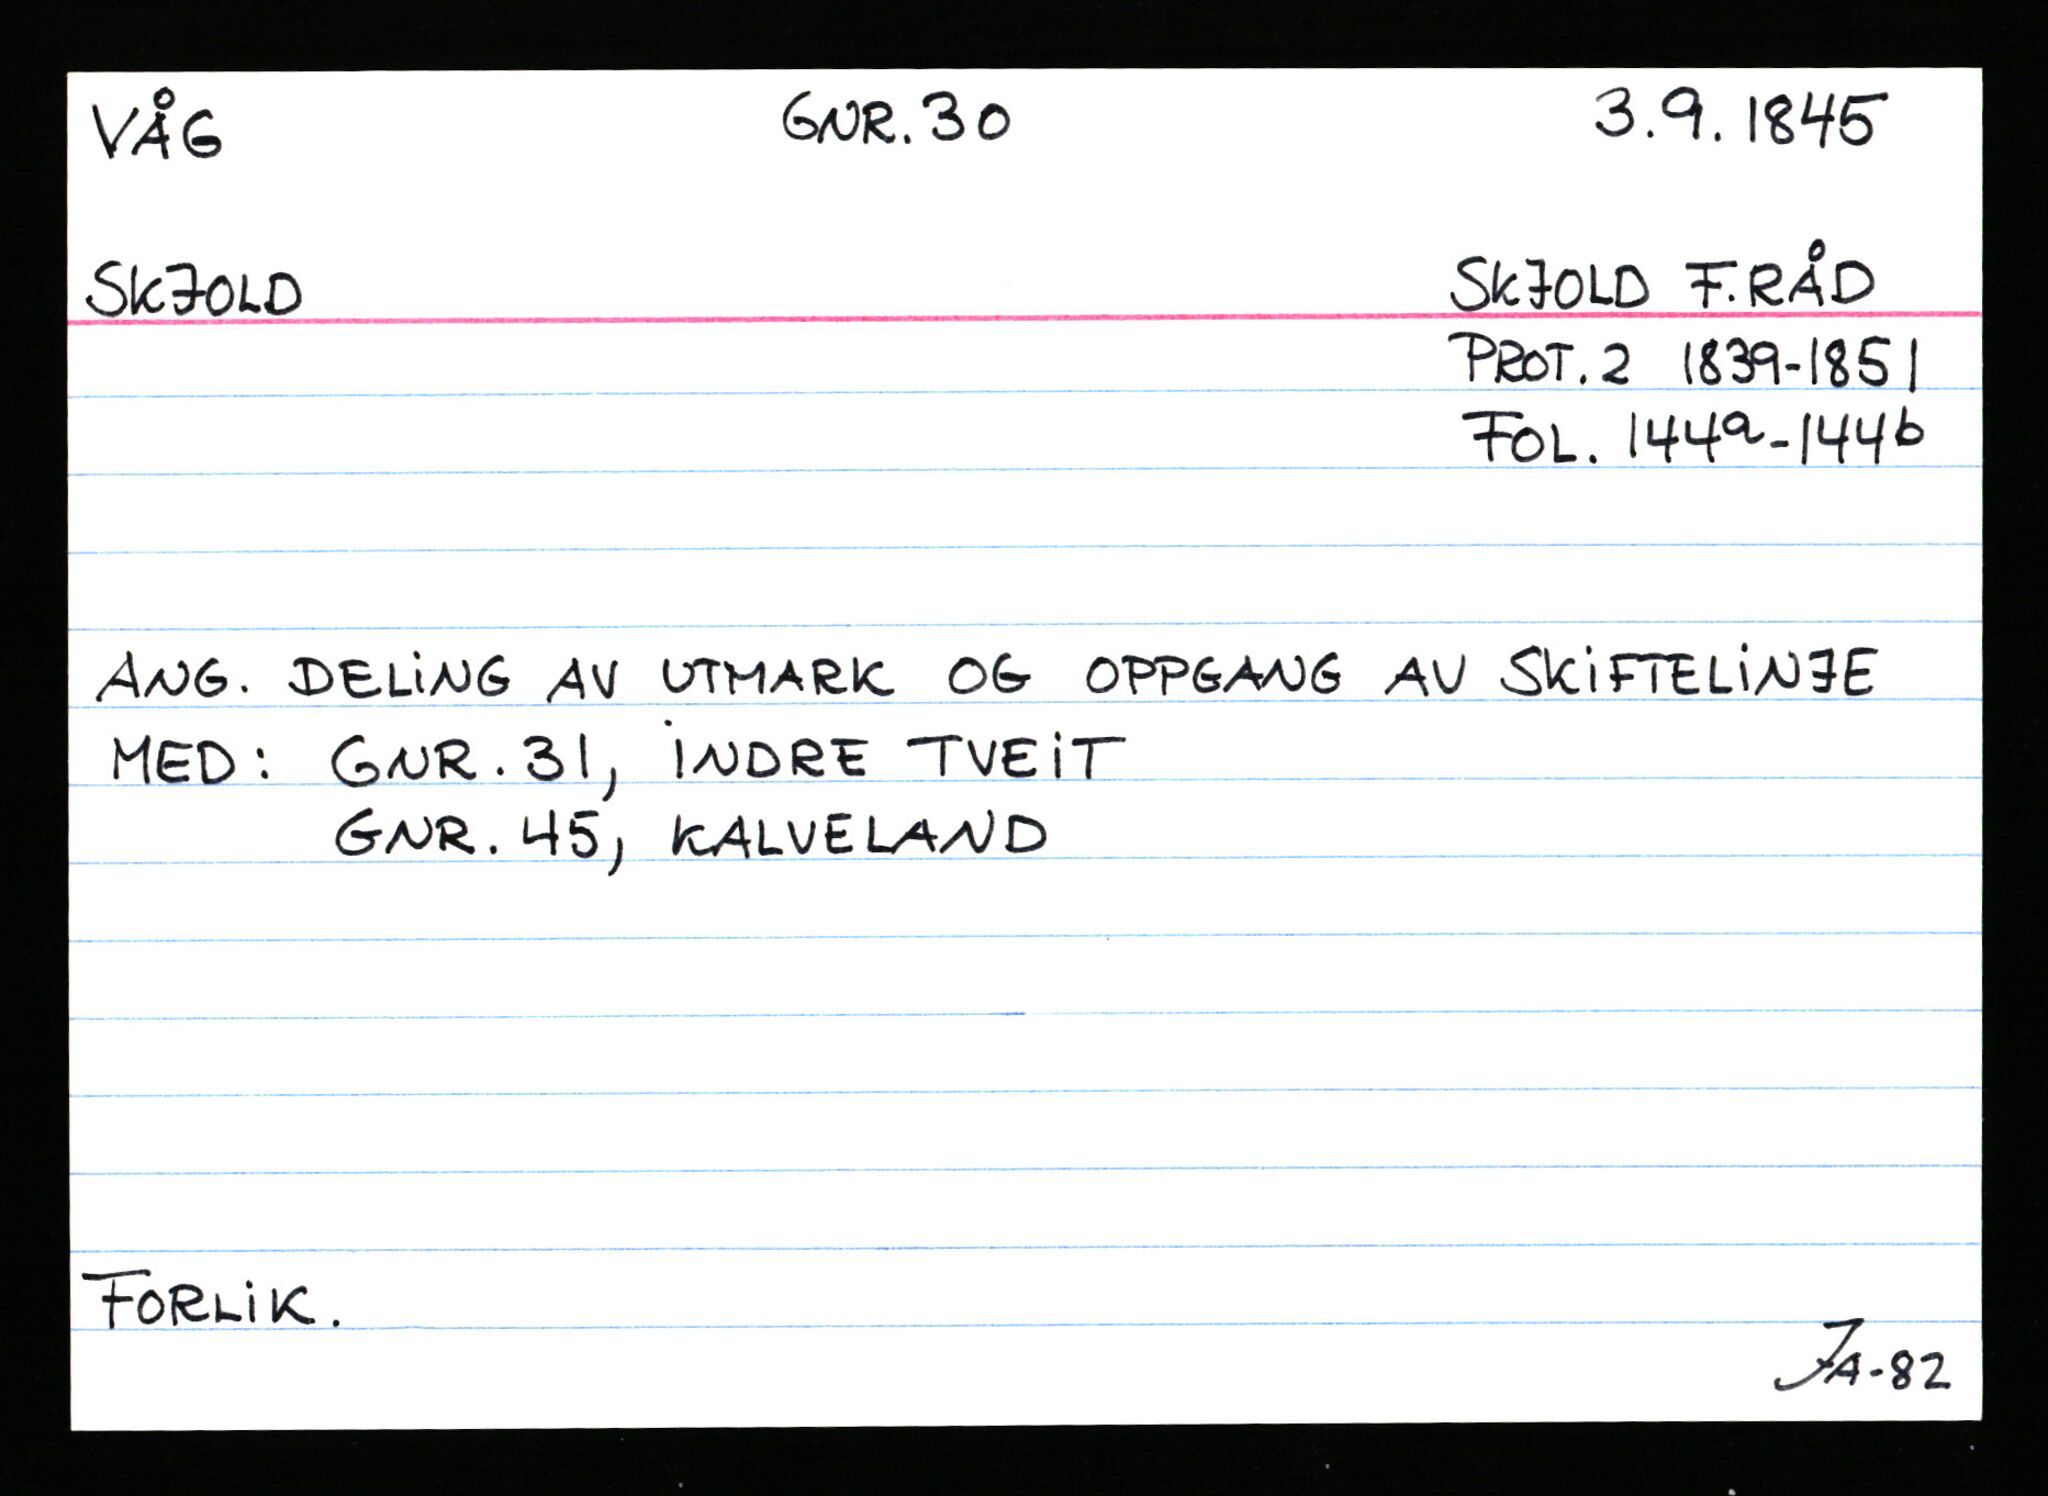 VÅG GNR. 30 3.9.1845
SKJOLD SKJOLD F.RÅD
PROT. 2 1839-1851
FOL. 144a-144b
ANG. DELING AV UTMARK OG OPPGANG AV SKIFTELINJE
MED: GNR. 31, INDRE TVEIT
GNR. 45, KALVELAND
FORLIK.
JA-82